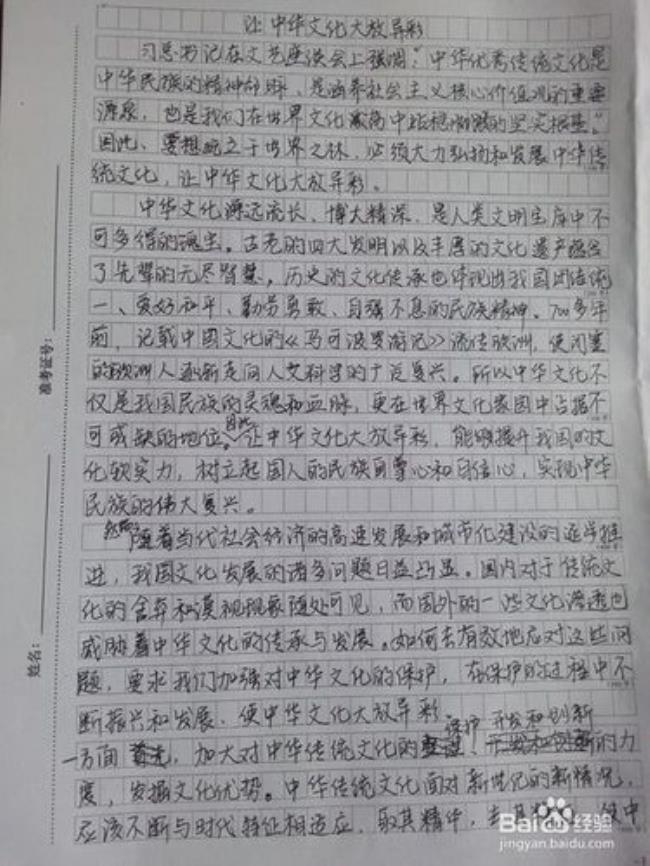 让中华文化大放异彩
习总书记在文艺座谈会上强调:“中华优秀传统文化是
中华民族的精神命脉、是涵养社会主义核心价值观的重要
源泉,也是我们在世界文化激荡中站稳脚跟的坚实根基。”
因此、要想屹立于世界之林,必须大力弘扬和发展中华传
统文化,让中华文化大放异彩。
中华文化源远流长、博大精深,是人类文明宝库中不
可多得的瑰宝。古老的四大发明以及丰厚的文化遗产蕴含
了先辈的无尽智慧,历史的文化传承也体现出我国团结统
一、爱好和平、勤劳勇敢、自强不息的民族精神。700多年
前,记载中国文化的《马可波罗游记》流传欧洲,使闭塞
的欧洲人逐渐走向人文科学的广泛复兴。所以中华文化不
仅是我国民族的灵魂和血脉,更在世界文化家园中占据不
可或缺的地位。因此让中华文化大放异彩,能够提升我国的文
化软实力,树立起国人的民族自尊心和自信心,实现中华
民族的伟大复兴。
然而随着当代社会经济的高速发展和城市化建设的逐步推
进,我国文化发展的诸多问题日益凸显。国内对于传统文
化的舍弃和漠视现象随处可见,而国外的一些文化渗透也
威胁着中华文化的传承与发展。如何去有效地应对这些问
题,要求我们加强对中华文化的保护,在保护的过程中不
断振兴和发展、使中华文化大放异彩
保护 开发和创新
一方面 加大对中华传统文化的 的力
度,发掘文化优势。中华传统文化面对新世纪的新情况,
应该不断与时代特征相适应,取其精华,去其 中
准考证号:
姓名:
Baidu经验
jingyan.baidu.com